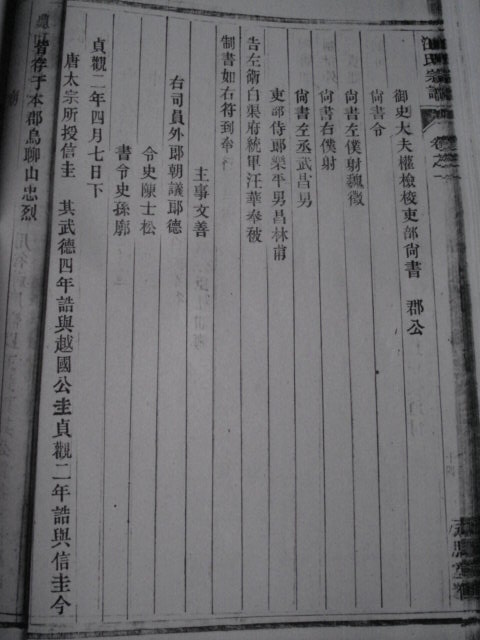 汪氏宗譜 卷之一
御史大夫權檢校吏部尚書 郡公
尚書令
尚書左僕射魏徵
尚書右僕射
尚書左丞武昌男
吏部侍郎樂平男昌林甫
告左衛白渠府統軍汪華奉被
制書如右符到奉
主事文善
右司員外郎朝議郎德
令史陳士松
書令史孫廓
貞觀二年四月七日下
唐太宗所授信圭 其武德四年誥與越國公圭貞觀二年誥與信圭今
皆存于本郡烏聊山忠烈